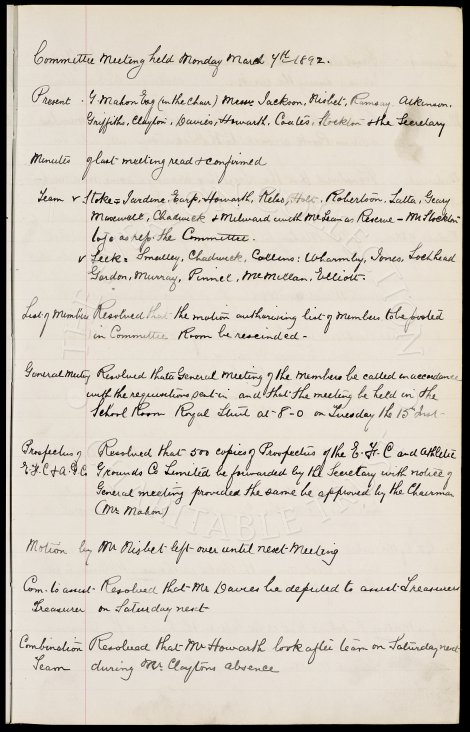 Committee Meeting held Monday March 7th 1892.
Present. G. Mahon Esq (in the Chair) Messrs Jackson, Nisbet, Ramsay, Atkinson,
Griffiths, Clayton, Davies, Howarth, Coates, Stockton & the Secretary
Minutes of last meeting read & confirmed
Team v Stoke: Jardine, Earp, Howarth, Kelso, Holt, Robertson, Latta, Geary
Maxwell, Chadwick & Milward with McLean as Reserve - Mr Stockton
to go as rep. the Committee.
v Leek: Smalley, Chadwick, Collins: Wharmby, Jones, Lochhead
Gordon, Murray, Pinnel, McMillan, Elliott.
List of Members Resolved that the motion authorising list of members to be posted
in Committee Room be rescinded -
General Meeting Resolved that a General Meeting of the Members be called in accordance
with the requisitions sent in and that the meeting be held in the
School Room Royal Street at 8-0 on Tuesday the 15th Inst -
Prospectus of Resolved that 500 copies of Prospectus of the E. F. C and Athletic
E. F. C & A. G Co Grounds Co Limited be forwarded by the Secretary with notice of
General meeting provided the same be approved by the Chairman
(Mr Mahon)
Motion by Mr Nisbet left over until next Meeting
Com. to assist Resolved that Mr Davies be deputed to assist Treasurer
Treasurer on Saturday next
Combination Resolved that Mr Howarth look after team on Saturday next
Team during Mr Claytons absence